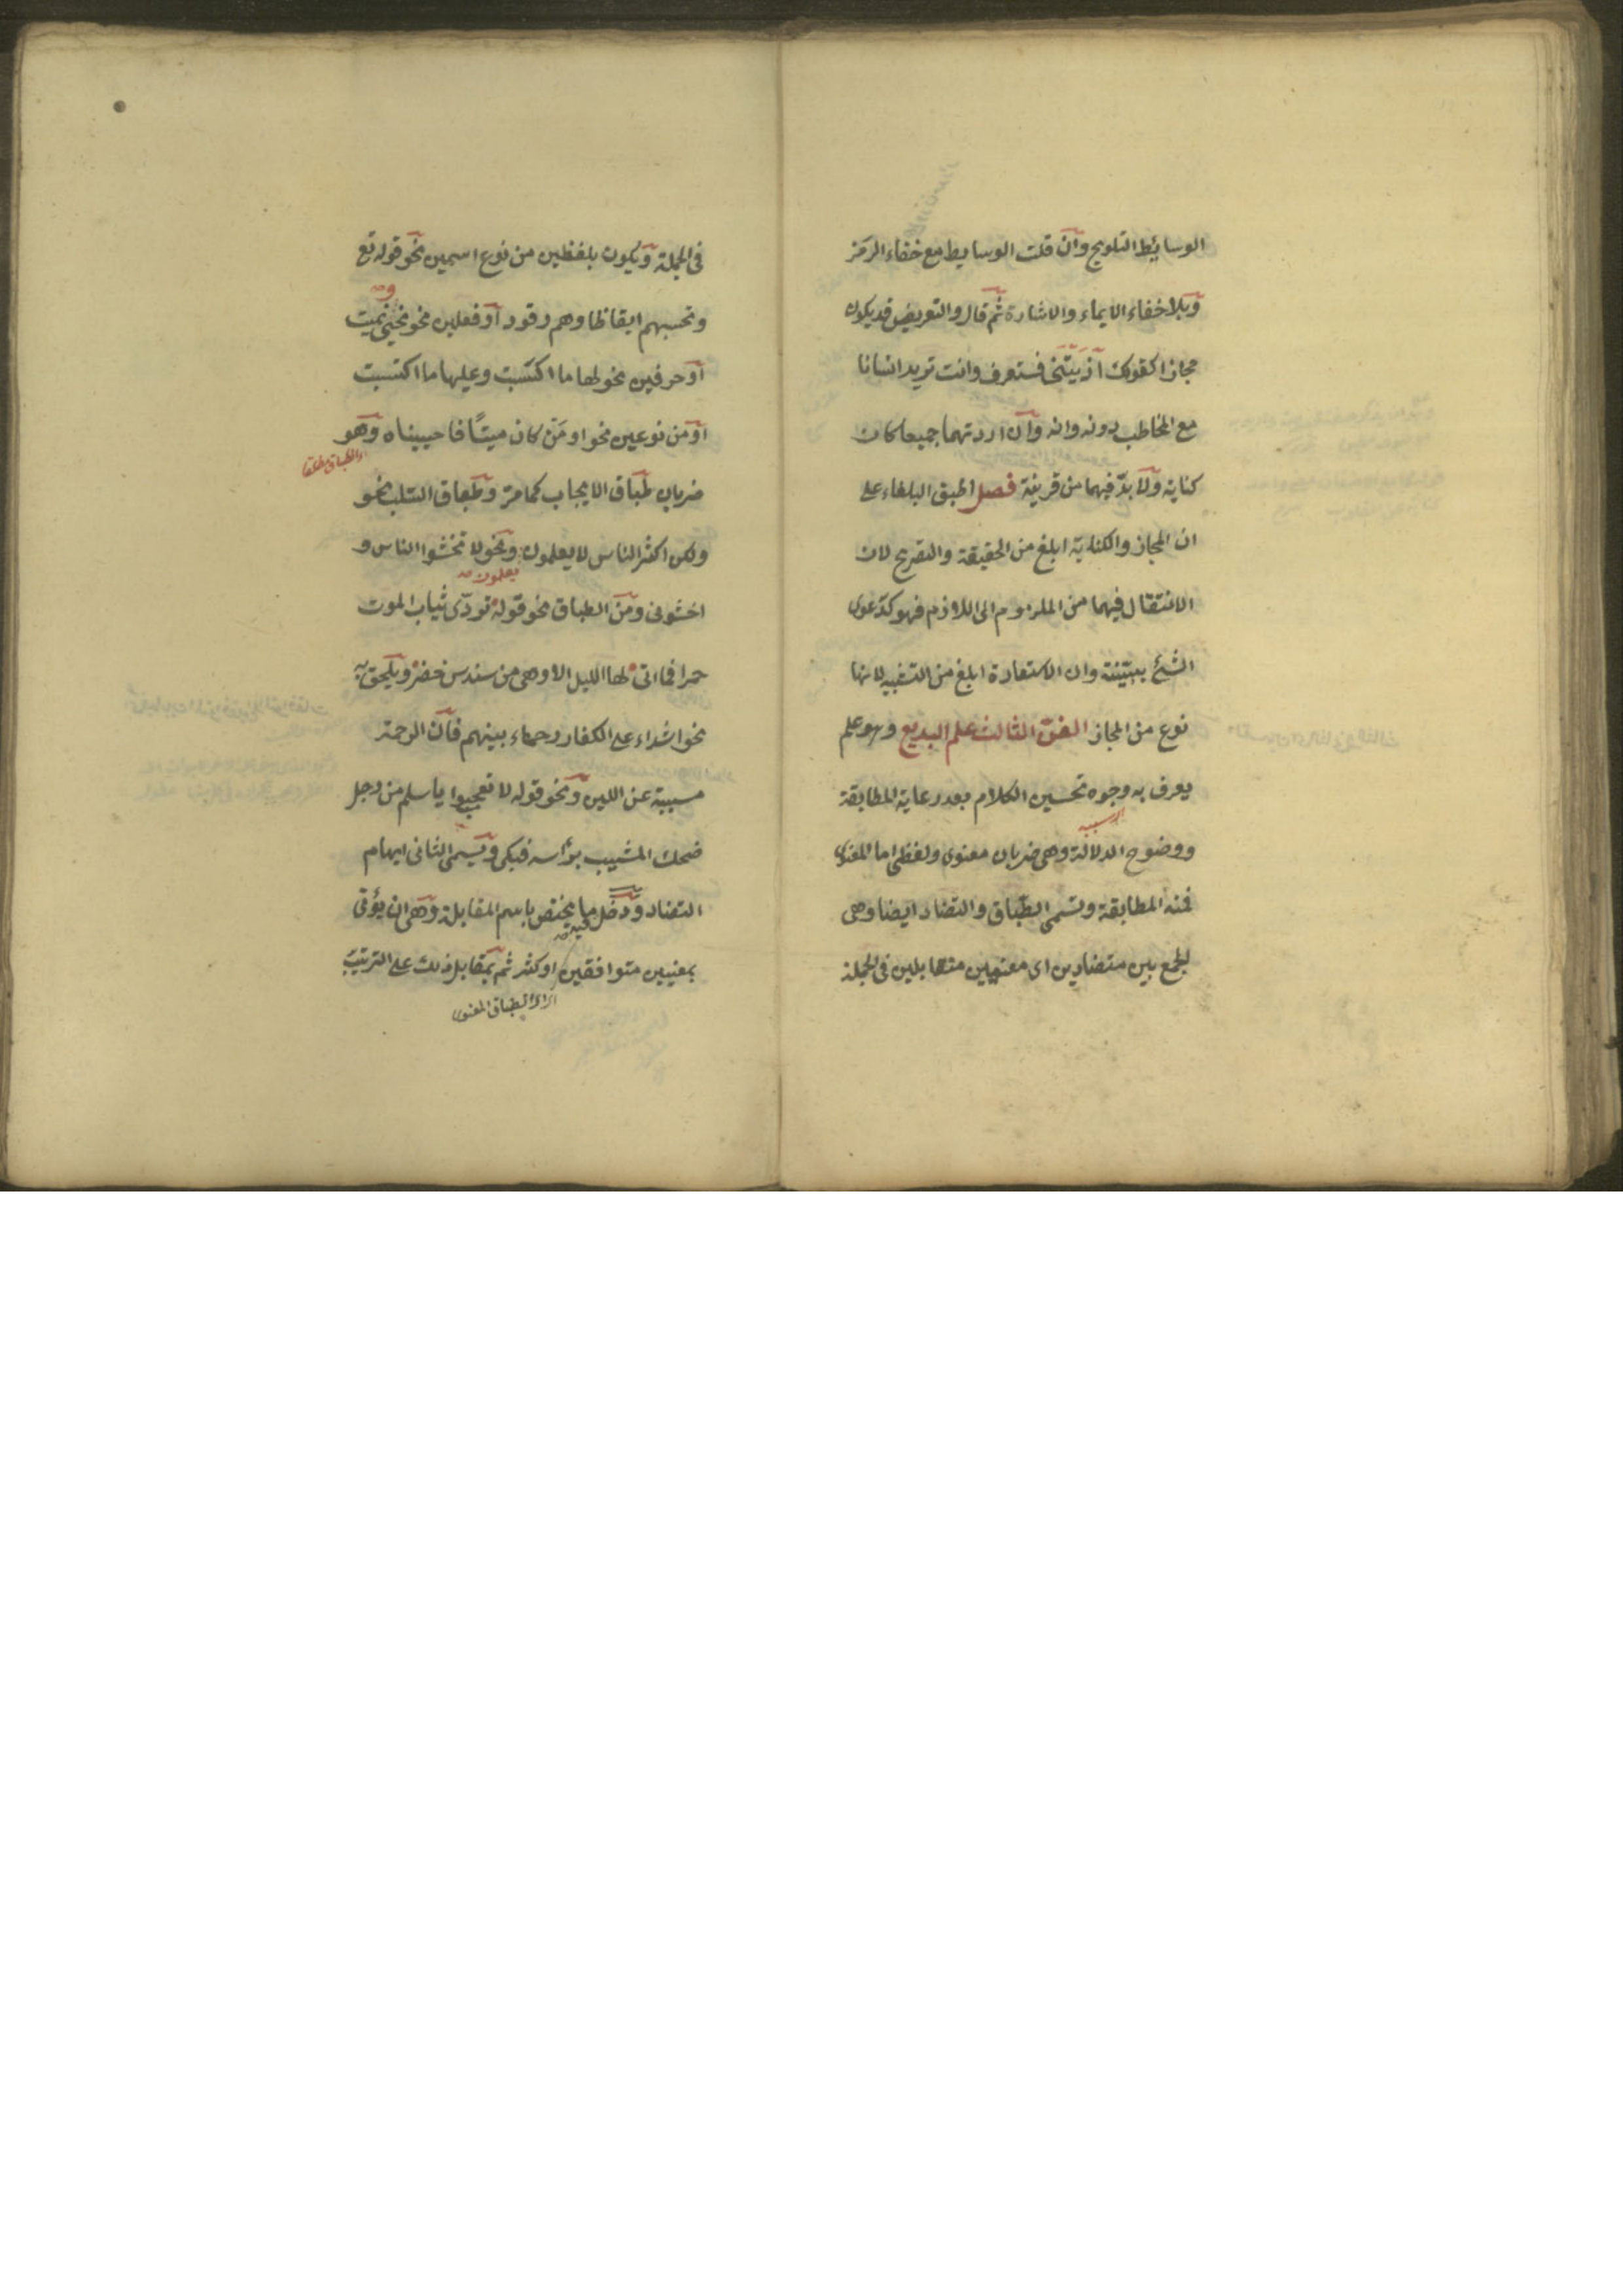 الوسايط التلويح وان قلت الوسايط مع خفاء الرمز
وبلا خفاء الايماء والاشارة ثم قال والتعريض قد يكون
مجازا كقولك آذيتنى فستعرف وانت تريد انسانا
مع المخاطب دونه وانه وان اردتهما جميعا كان
كناية ولا بدّ فيهما من قرينة فصل اطبق البلغاء على
ان المجاز والكناية ابلغ من الحقيقة والتصريح لان
الانتقال فيهما من الملزوم الى اللازم فهو كدعوى
الشئ ببيّنة وان الاستعارة ابلغ من التشبيه لانها
نوع من المجاز الفنّ الثالث علم البديع وهو علم
يعرف به وجوه تحسين الكلام بعد رعاية المطابقة
ووضوح الدلالة وهى ضربان معنوى ولفظى اما المعنوى
فمنه المطابقة وتسمى الطباق والتضاد ايضا وهى
الجمع بين متضادين اى معنيين متقابلين فى الجملة
فى الجملة ويكون بلفظين من نوع اسمين نحو قوله تع
و
وتحسبهم ايقاظا وهم رقود أو فعلين نحو نحيى نميت
أو حرفين نحو لها ما اكتسبت وعليها ما اكتسبت
أو من نوعين نحو او مَن كان ميتًا فاحييناه وهو
الطباق مطلقا
ضربان طباق الايجاب كما مرّ وطباق السّلب نحو
ولكن اكثر الناس لا يعلمون ونحو لا تخشوا الناس و
يعلمون
اخشونى ومن الطباق نحو قوله تردّى ثياب الموت
حمرا فما اتى لها الليل الا وهى من سندس خضر ويلحق به
نحو اشداء على الكفار رحماء بينهم فان الرحمة
مسببة عن اللين ونحو قوله لا تعجبوا يا سلم من رجل
ضحك المشيب برأسه فبكى ويسمى الثانى ايهام
التضاد ودخل فيه ما يختص باسم المقابلة وهى ان يؤتى
بمعنيين متوافقين او كثر ثم بمقابل ذلك على الترتيب
الطباق المعنوى